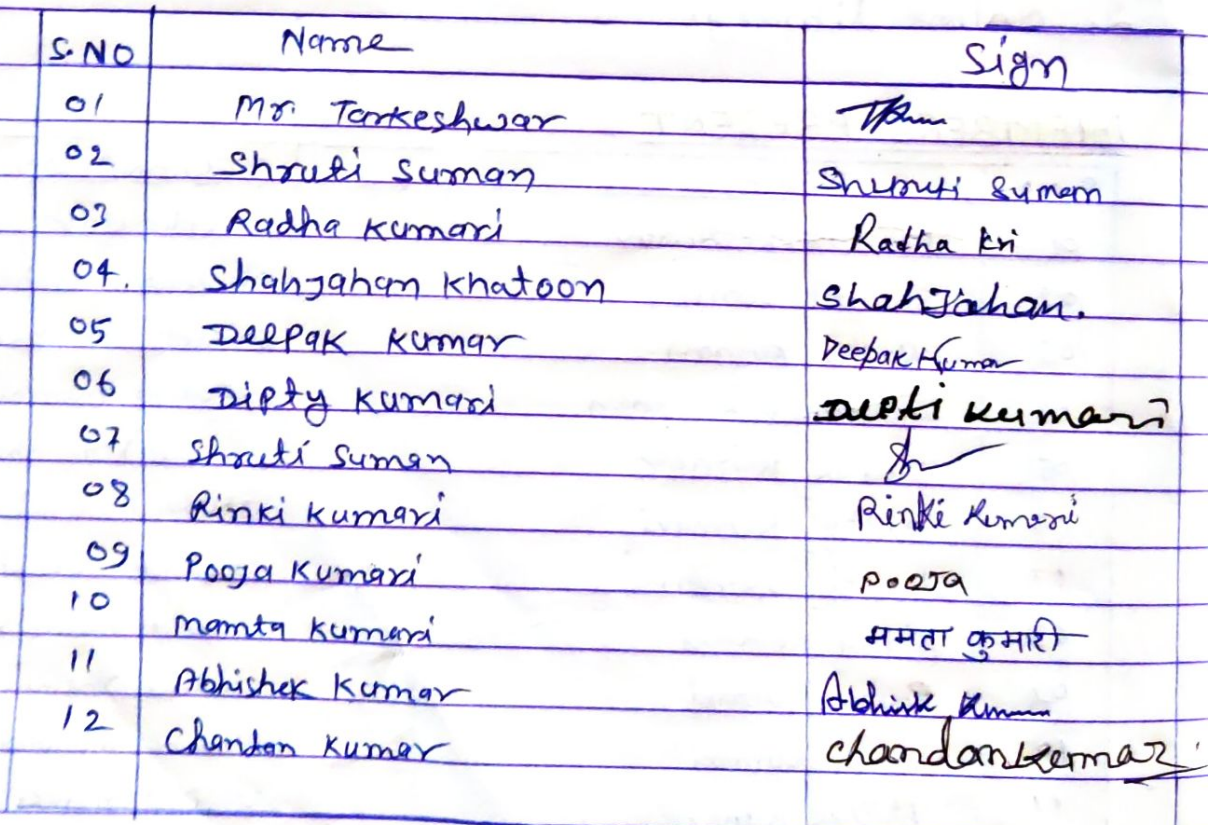 S.NO Name Sign
01 Mr. Tarkeshwar
02 Shruti Suman Shruti Suman
03 Radha Kumari Radha Kri
04. Shahjahan Khatoon Shahjahan.
05 Deepak Kumar Deepak Kumar
06 Dipty Kumari Dipti Kumari
07 Shruti Suman
08 Rinki Kumari Rinki Kumari
09 Pooja Kumari Pooja
10 Mamta Kumari ममता कुमारी
11 Abhishek Kumar
12 Chandan Kumar Chandan Kumar